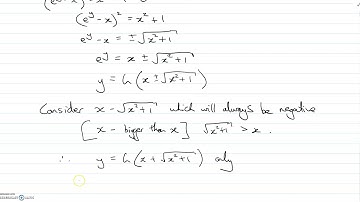 (e^y - x)² = x² + 1
e^y - x = ±√(x²+1)
e^y = x ± √(x²+1)
y = ln(x ± √(x²+1))
Consider x - √(x²+1) which will always be negative
[x - bigger than x] √(x²+1) > x.
∴ y = ln(x + √(x²+1)) only